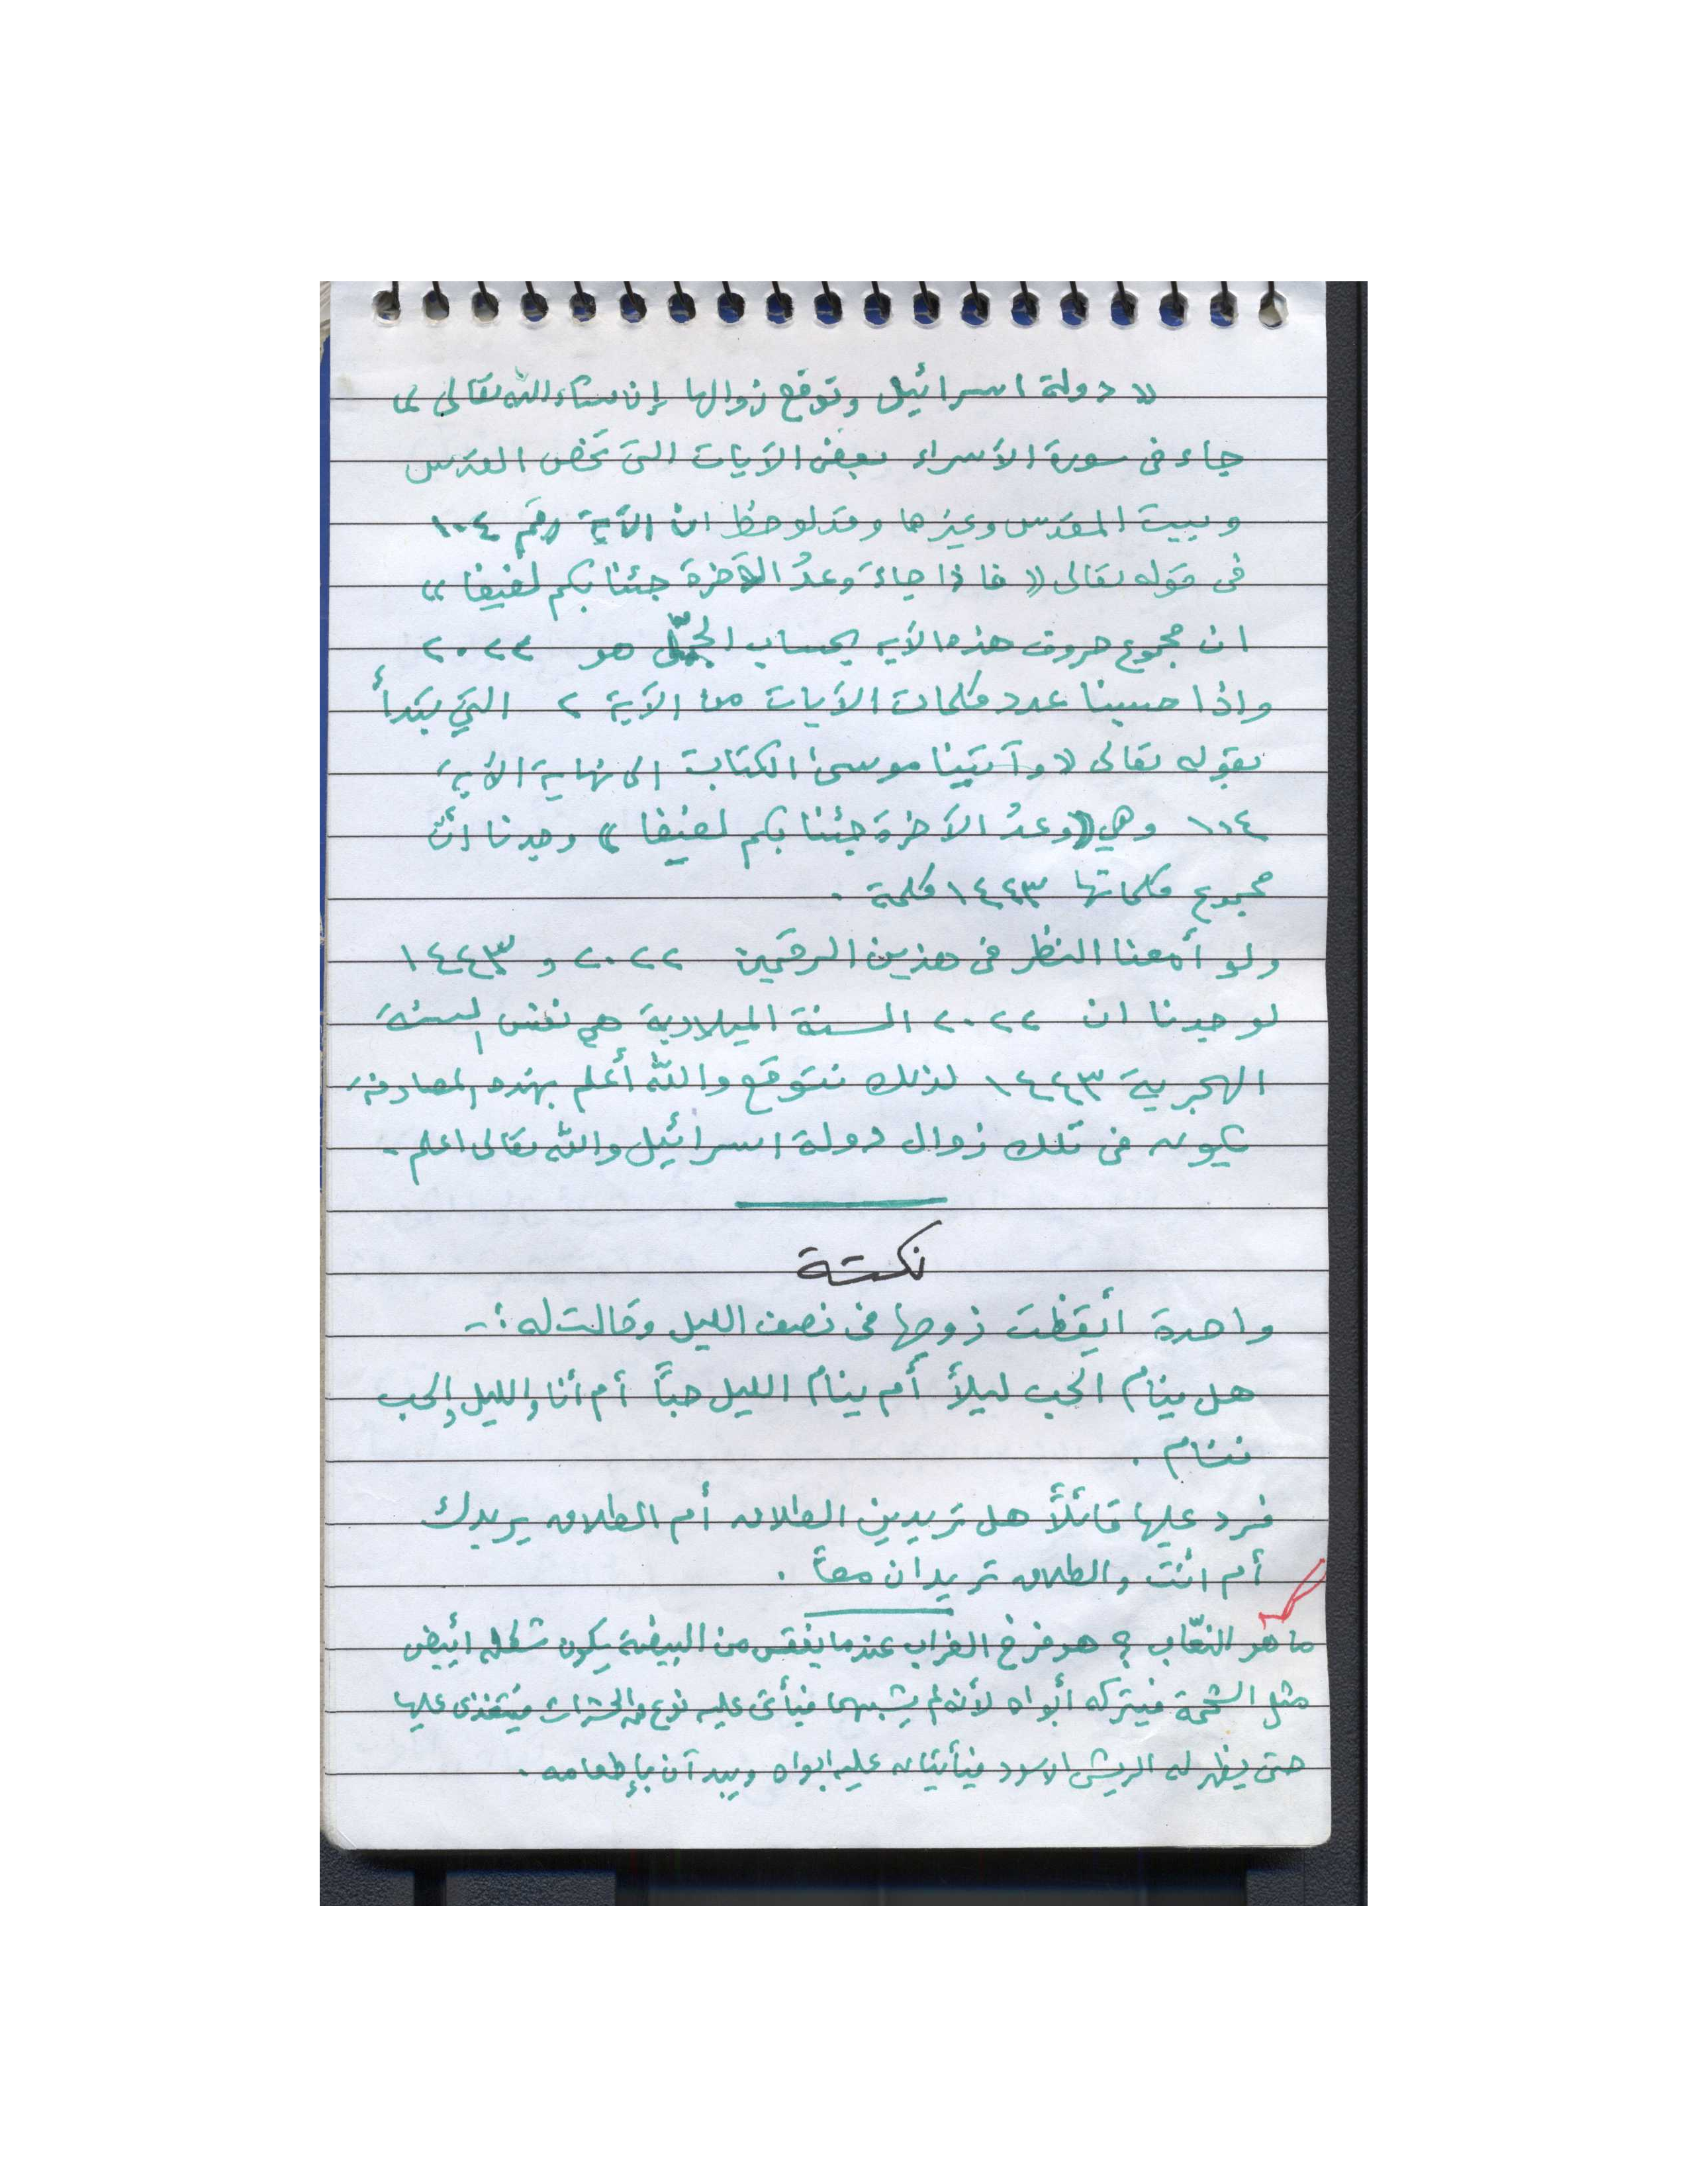 « دولة اسرائيل وتوقع زوالها إن شاء الله تعالى »
جاء فى سورة الأسراء بعض الآيات التى تخص القدس
وبيت المقدس وغيرها وقد لوحظ ان الآية رقم ١٠٤
فى قوله تعالى « فاذا جاءَ وعدُ الآخرة جئنا بكم لفيفا »
ان مجموع حروف هذه الآيه بحساب الجمّل هو ٢٠٢٢
واذا حسبنا عدد كلمات الآيات من الآية ٢ التي تبدأ
بقوله تعالى « وآتينا موسىٰ الكتاب الى نهاية الآية
١٠٤ وهي «وعدُ الآخرة جئنا بكم لفيفا » وجدنا أنّ
مجموع كلماتها ١٤٤٣ كلمة .
ولو أمعنا النظر فى هذين الرقمين ٢٠٢٢ و ١٤٤٣
لوجدنا ان ٢٠٢٢ السنة الميلادية هي نفس السنة
الهجرية ١٤٤٣ لذلك نتوقع والله أعلم بهذه المصادفة
يكون فى تلك زوال دولة اسرائيل والله تعالى اعلم .
نكتة
واحدة أيقظت زوجها فى نصف الليل وقالت له :-
هل ينام الحب ليلاً أم ينام الليل حباً أم أنا والليل والحب
ننام .
فرد عليها قائلاً هل تريدين الطلاق أم الطلاق يريدك
أم انتَ والطلاق تريدان معاً .
ما هو النعّاب ؟ هو فرخ الغراب عندما يفقس من البيضة يكون شكله ابيض
مثل الشحمة فيتركه أبواه لأنه لم يشبهها فيأتى عليه نوع من الحشرات فيتغذى عليها
حتى يظهر له الريش الاسود فيأتيان عليه ابواه ويبدآن بإطعامه .